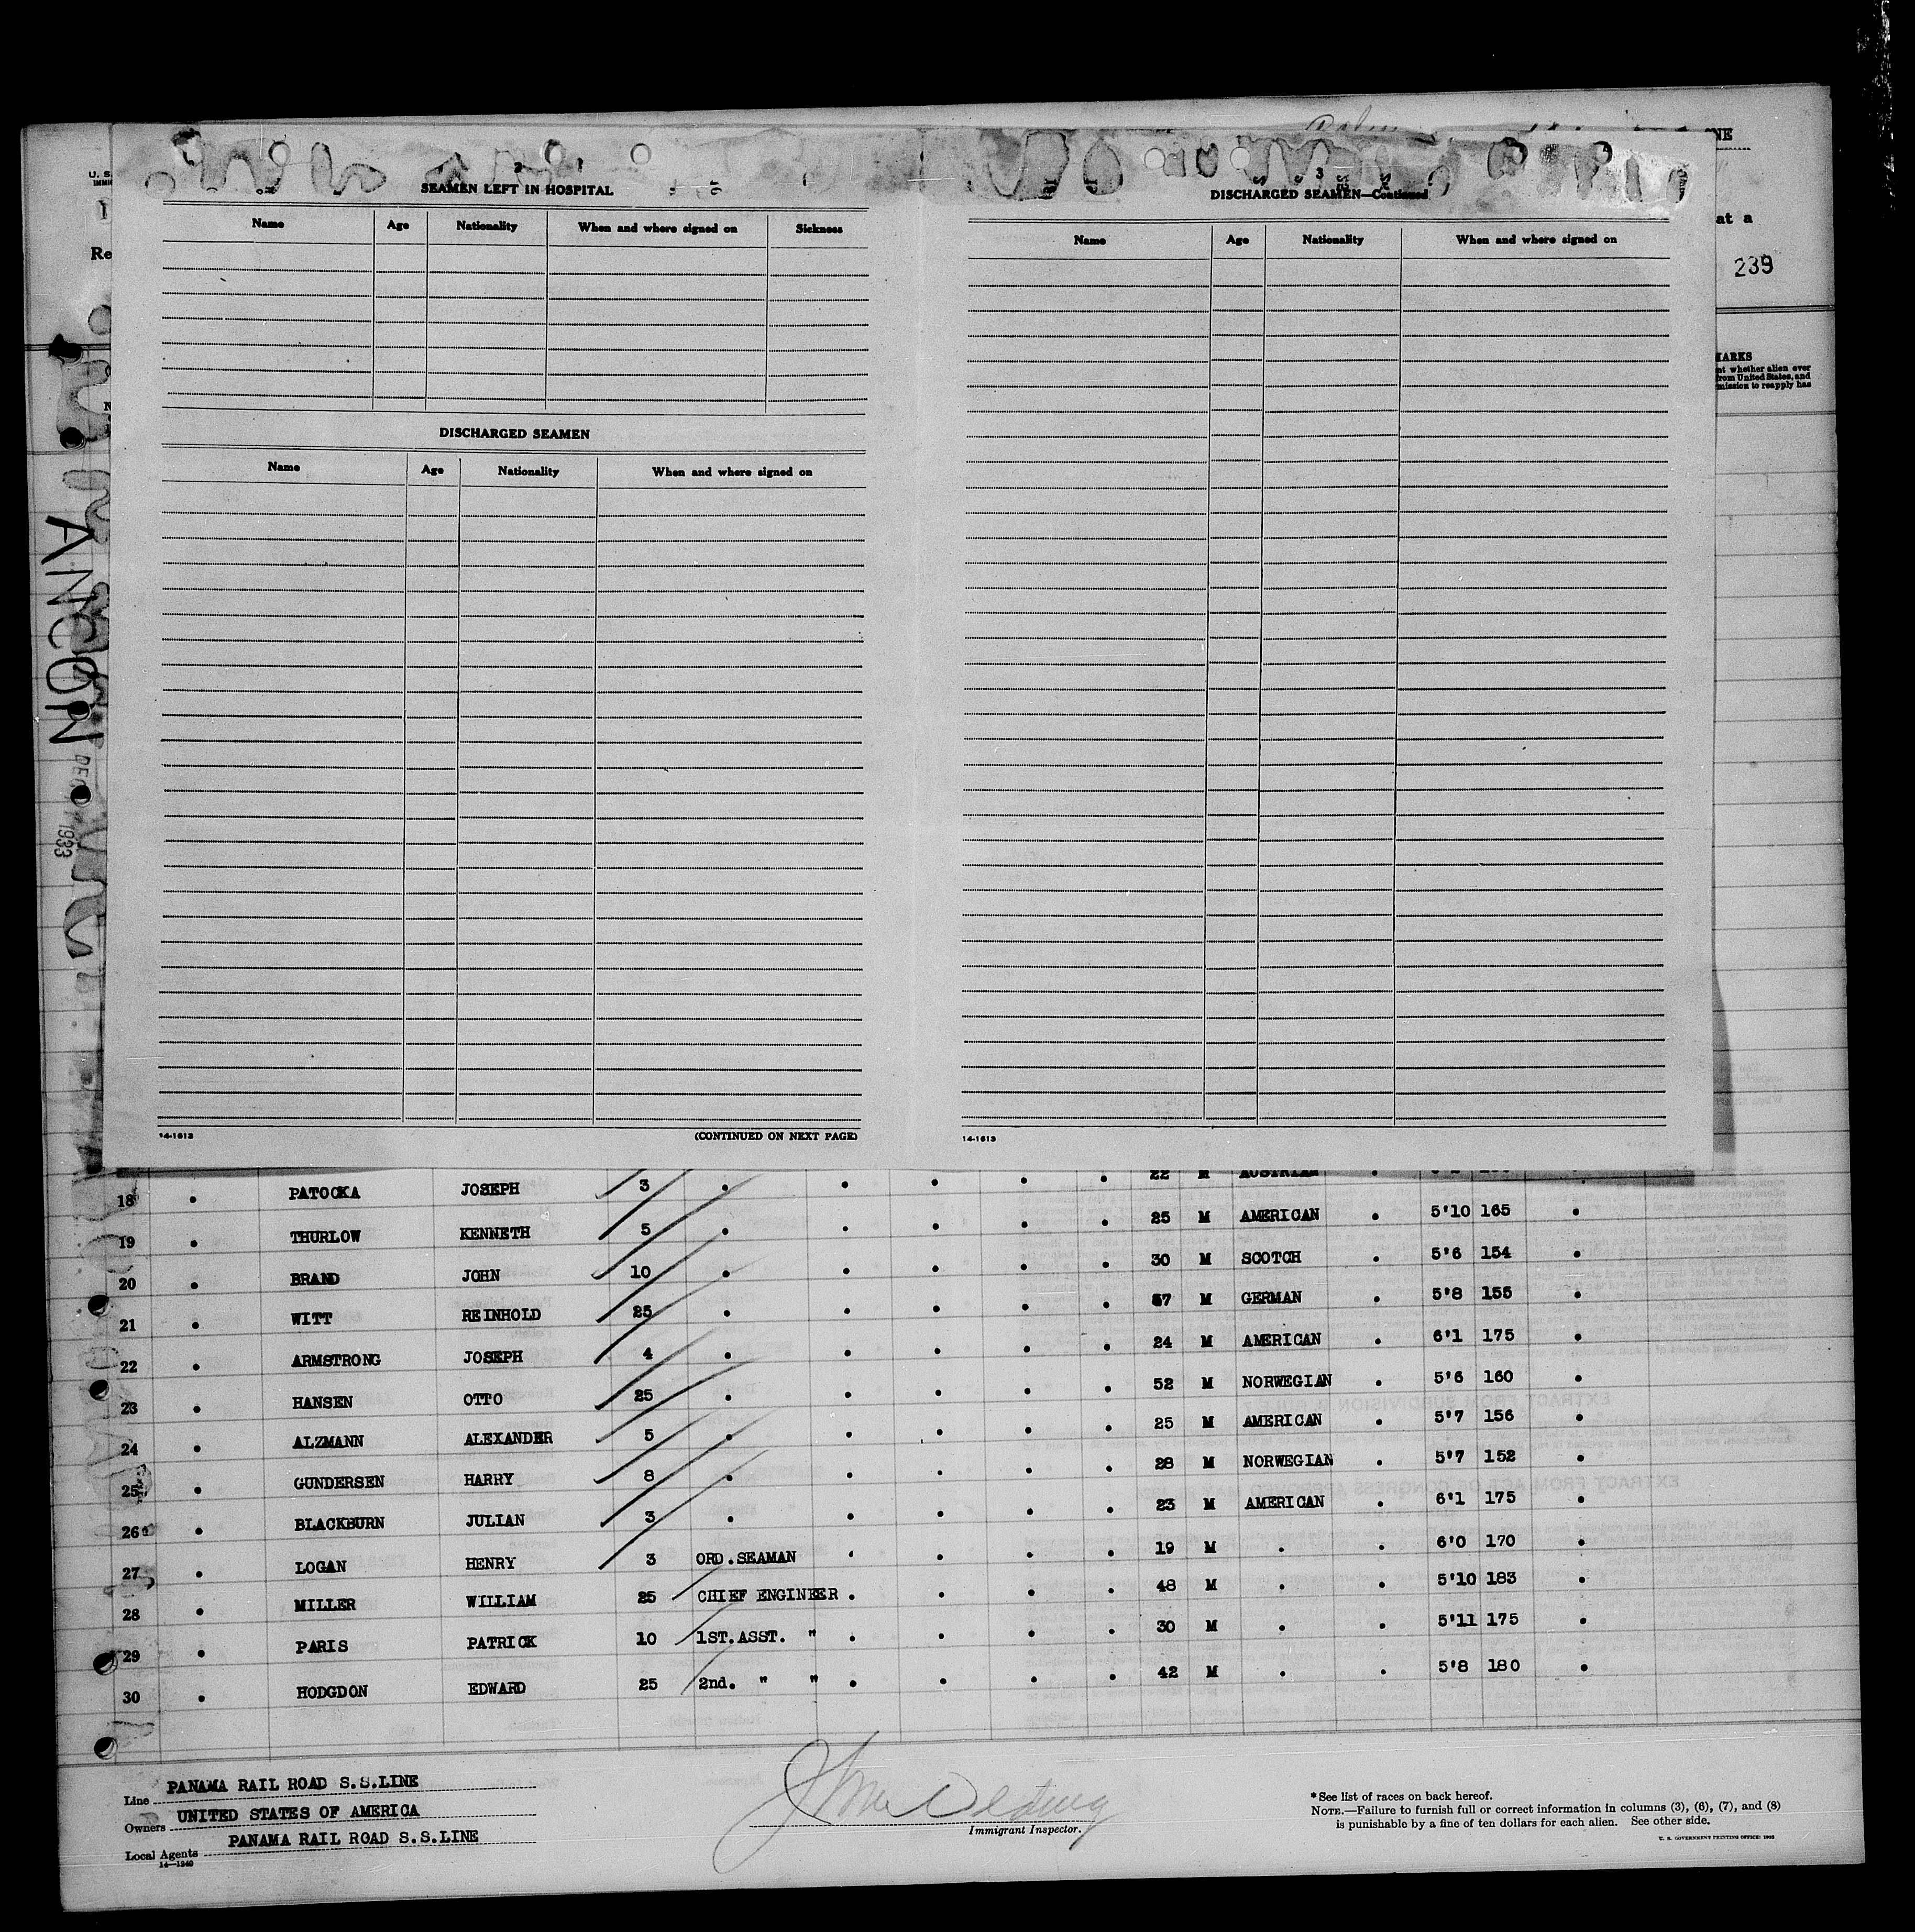 NE
U. S.
at a
Re
239
MARKS
nt whether alien ever
from United States, and
mission to reapply has
ANCON
DEC 1933
2
SEAMEN LEFT IN HOSPITAL
Name Age Nationality When and where signed on Sickness
DISCHARGED SEAMEN
Name Age Nationality When and where signed on
14-1613 (CONTINUED ON NEXT PAGE)
3
DISCHARGED SEAMEN—Continued
Name Age Nationality When and where signed on
14-1613
18 PATOCKA JOSEPH 3 22 M AUSTRIAN
19 THURLOW KENNETH 5 25 M AMERICAN 5'10 165
20 BRAND JOHN 10 30 M SCOTCH 5'6 154
21 WITT REINHOLD 25 57 M GERMAN 5'8 155
22 ARMSTRONG JOSEPH 4 24 M AMERICAN 6'1 175
23 HANSEN OTTO 25 52 M NORWEGIAN 5'6 160
24 ALZMANN ALEXANDER 5 25 M AMERICAN 5'7 156
25 GUNDERSEN HARRY 8 28 M NORWEGIAN 5'7 152
26 BLACKBURN JULIAN 3 23 M AMERICAN 6'1 175
27 LOGAN HENRY 3 ORD.SEAMAN 19 M 6'0 170
28 MILLER WILLIAM 25 CHIEF ENGINEER 48 M 5'10 183
29 PARIS PATRICK 10 1ST.ASST. " 30 M 5'11 175
30 HODGDON EDWARD 25 2nd. " " 42 M 5'8 180
Line PANAMA RAIL ROAD S.S.LINE
Owners UNITED STATES OF AMERICA
Local Agents PANAMA RAIL ROAD S.S.LINE
14—1240
Immigrant Inspector.
* See list of races on back hereof.
NOTE.—Failure to furnish full or correct information in columns (3), (6), (7), and (8)
is punishable by a fine of ten dollars for each alien. See other side.
U. S. GOVERNMENT PRINTING OFFICE: 1932